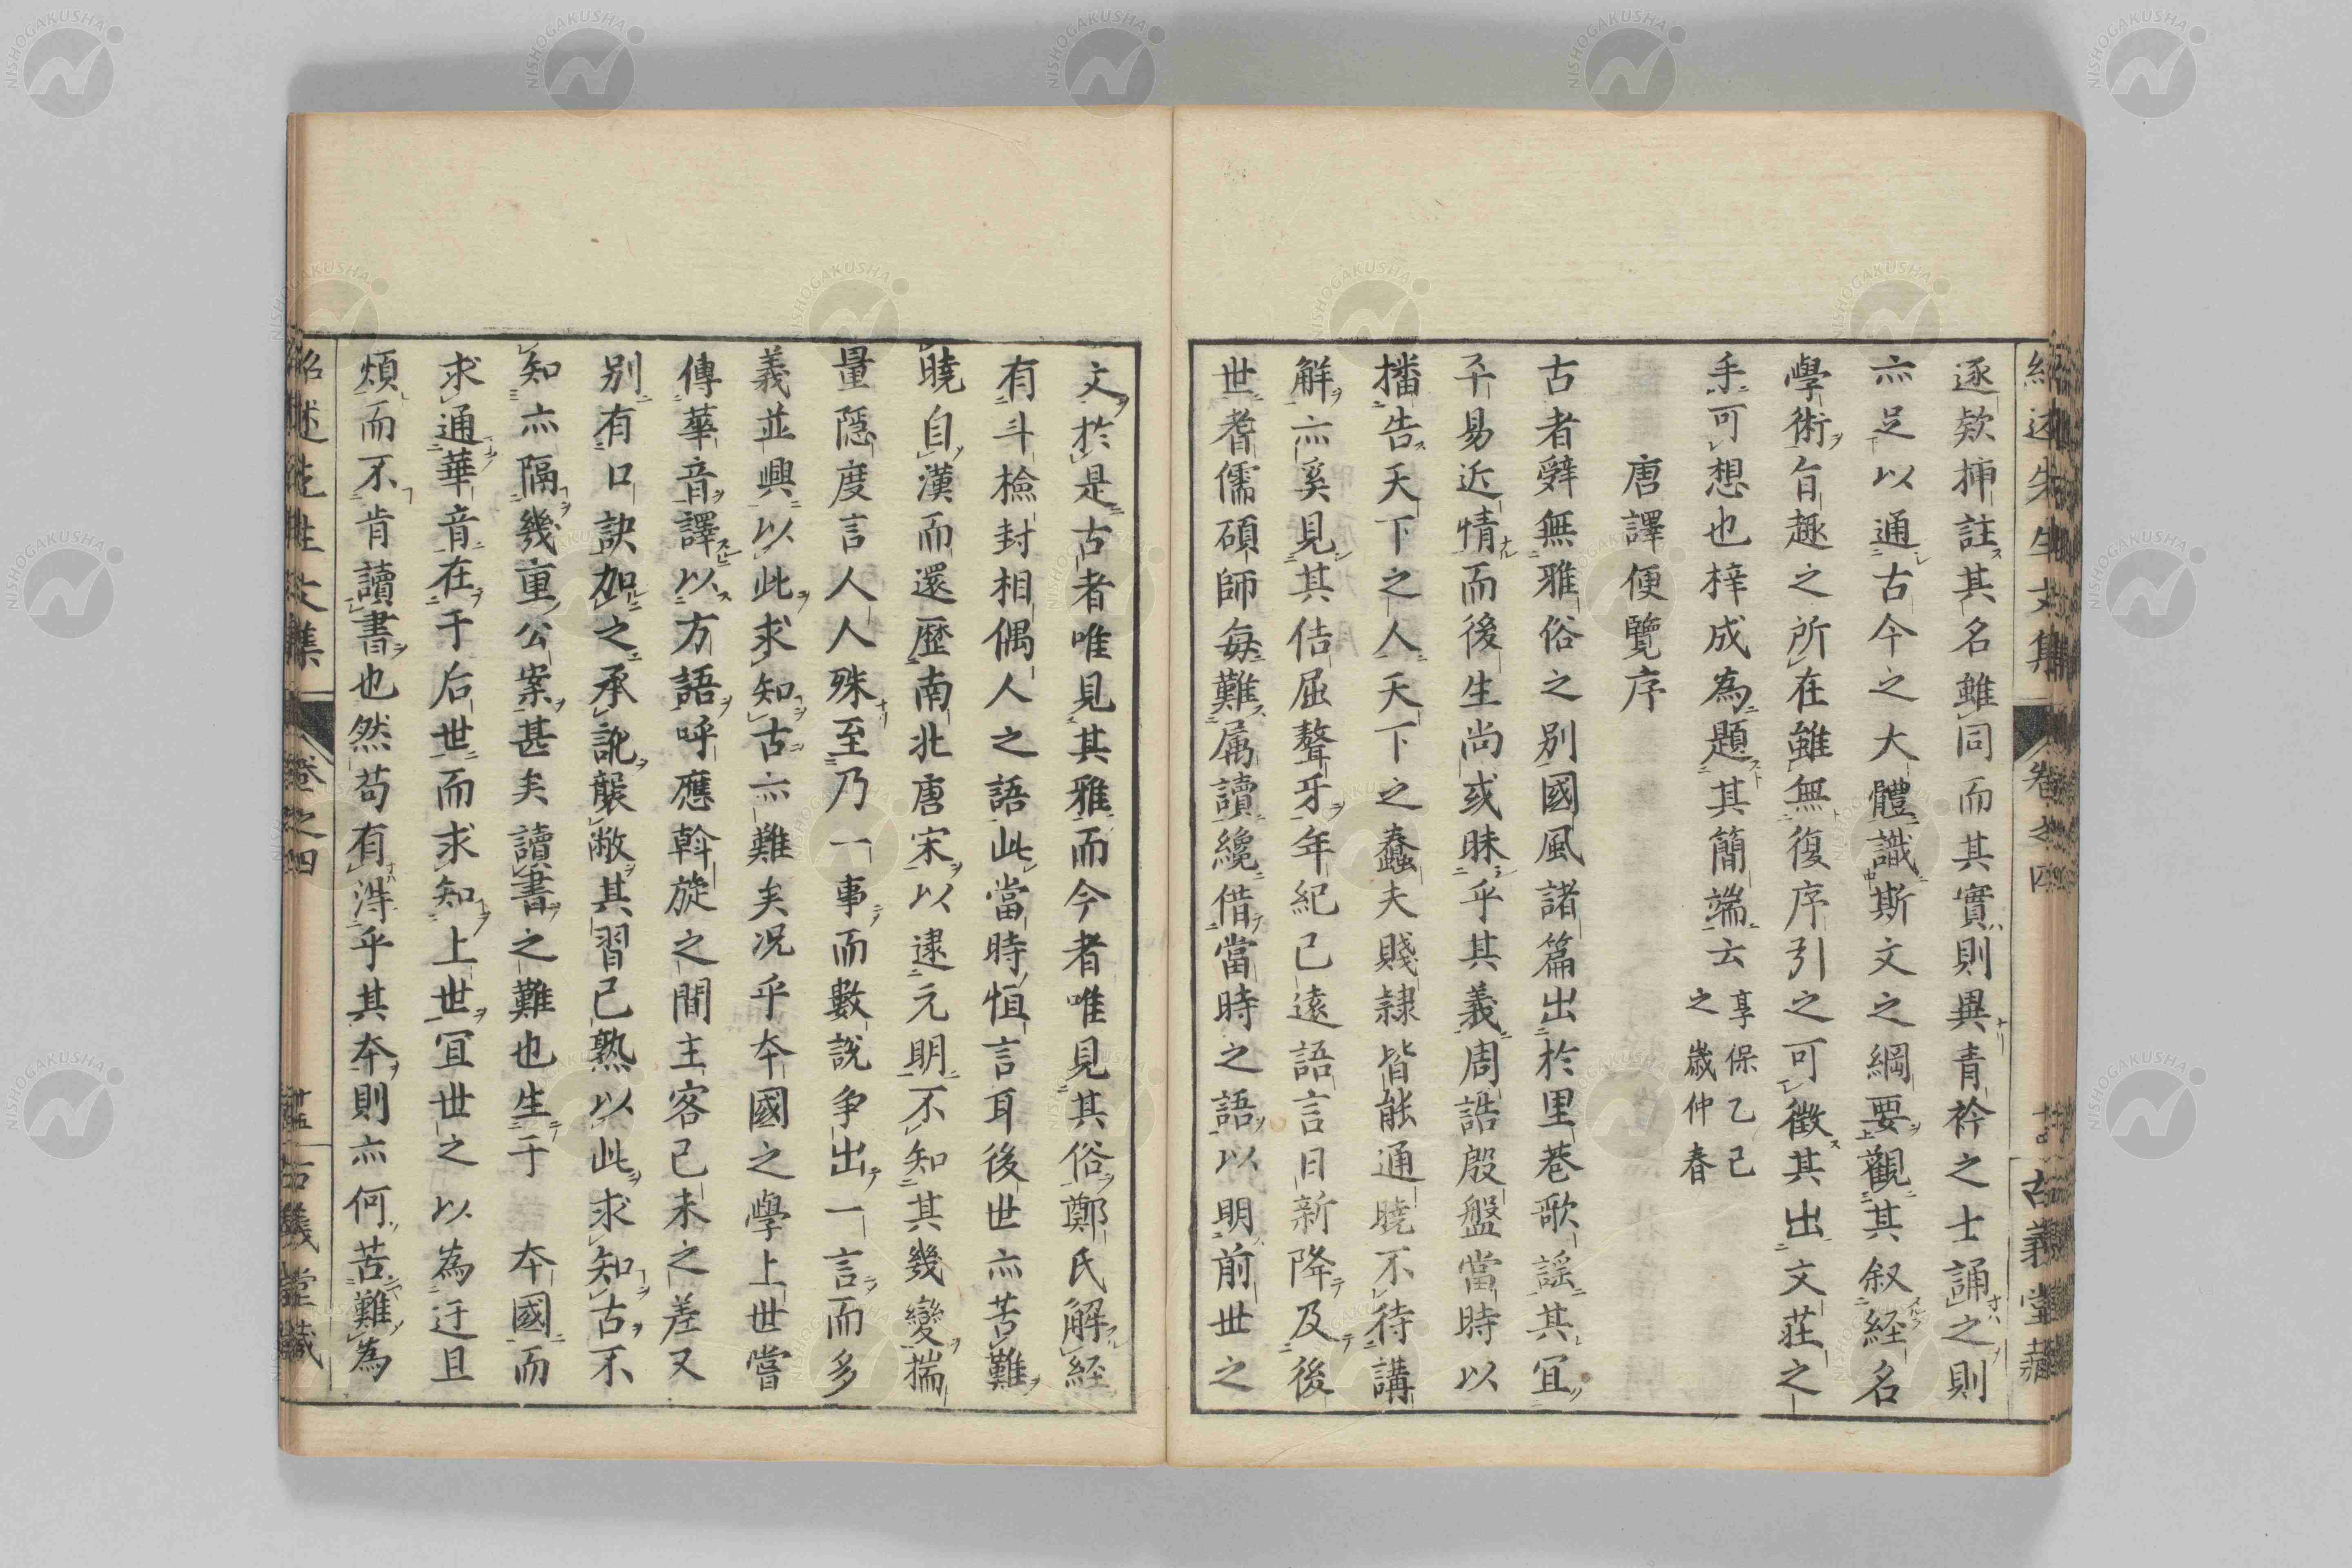 逐欵挿註其名雖同而其實則異青衿之士誦之則
亦足以通古今之大體識斯文之綱要觀其叙経名
學術旨趣之所在雖無復序引之可徵其出文荘之
手可想也梓成為題其簡端云享保乙己之歳仲春
唐譯便覽序
古者辭無雅俗之別國風諸篇出於里巷歌謡其冝
乎易近情而後生尚或昧乎其義周誥殷盤當時以
播告天下之人天下之蠢夫賤隷皆能通曉不待講
解亦奚見其佶屈聱牙年紀已遠語言日新降及後
世耆儒碩師每難属讀纔借當時之語以明前世之
文於是古者唯見其雅而今者唯見其俗鄭氏解経
有斗檢封相偶人之語此當時恒言耳後世亦苦難
曉自漢而還歴南北唐宋以逮元明不知其幾變揣
量隱度言人人殊至乃一事而數說争出一言而多
義並興以此求知古亦難矣况乎夲國之學上世嘗
傳華音譯以方語呼應斡旋之間主客已未之差又
別有口訣加之承訛襲敝其習已熟以此求知古不
知亦隔幾重公案甚矣讀書之難也生于 夲國而
求通華音在于后世而求知上世冝世之以為迂且
煩而不肯讀書也然苟有淂乎其夲則亦何苦難為
紹述先生文集 卷之四 古義堂藏